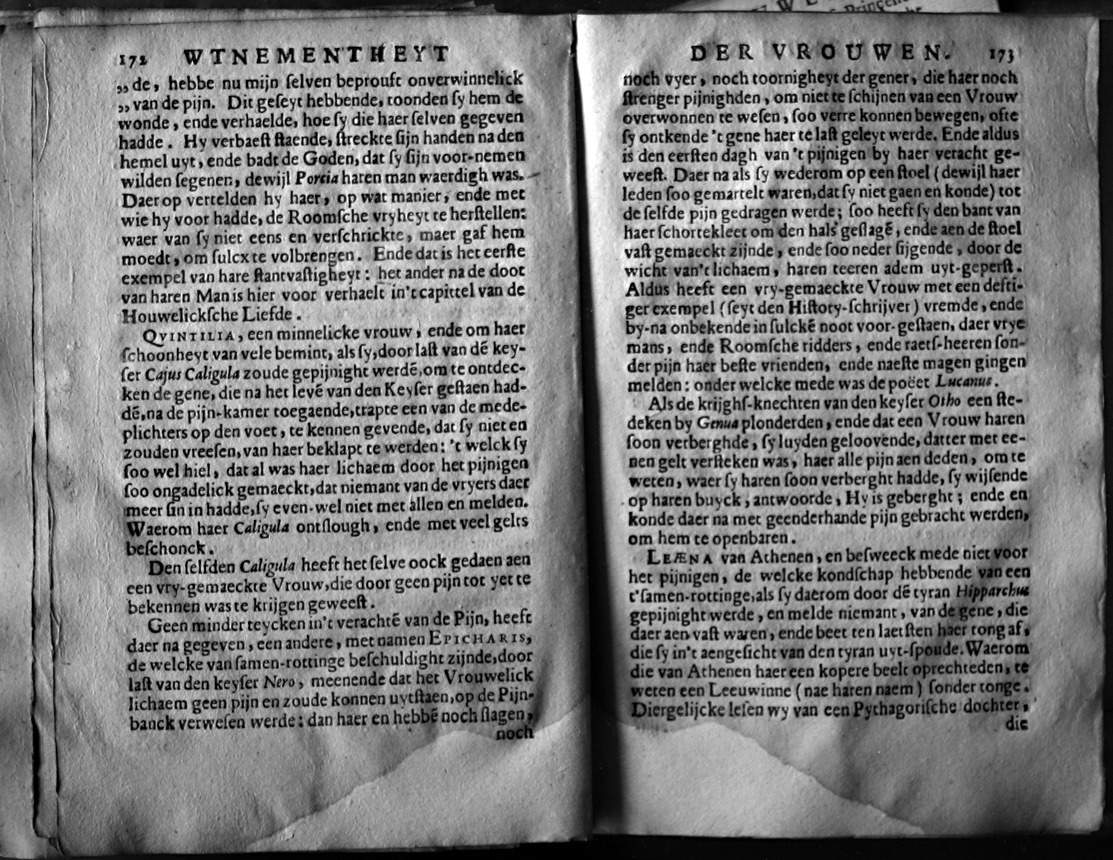 172 WTNEMENTHEYT
„de, hebbe nu mijn ſelven beprouft onverwinnelick
„van de pijn. Dit geſeyt hebbende, toonden ſy hem de
wonde, ende verhaelde, hoe ſy die haer ſelven gegeven
hadde. Hy verbaeſt ſtaende, ſtreckte ſijn handen na den
hemel uyt, ende badt de Goden, dat ſy ſijn voor-nemen
wilden ſegenen, dewijl Porcia haren man waerdigh was.
Daer op vertelden hy haer, op wat manier, ende met
wie hy voor hadde, de Roomſche vryheyt te herſtellen:
waer van ſy niet eens en verſchrickte, maer gaf hem
moedt, om ſulcx te volbrengen. Ende dat is het eerſte
exempel van hare ſtantvaſtigheyt: het ander na de doot
van haren Man is hier voor verhaelt in't capittel van de
Houwelickſche Liefde.
QVINTILIA, een minnelicke vrouw, ende om haer
ſchoonheyt van vele bemint, als ſy, door laſt van dē key-
ſer Cajus Caligula zoude gepijnight werdē, om te ontdec-
ken de gene, die na het levē van den Keyſer geſtaen had-
dē, na de pijn-kamer toegaende, trapte een van de mede-
plichters op den voet, te kennen gevende, dat ſy niet en
zouden vreeſen, van haer beklapt te werden: 't welck ſy
ſoo wel hiel, dat al was haer lichaem door het pijnigen
ſoo ongadelick gemaeckt, dat niemant van de vryers daer
meer ſin in hadde, ſy even-wel niet met allen en melden.
Waerom haer Caligula ontſlough, ende met veel gelts
beſchonck.
Den ſelfden Caligula heeft het ſelve oock gedaen aen
een vry-gemaeckte Vrouw, die door geen pijn tot yet te
bekennen was te krijgen geweeſt.
Geen minder teycken in't verachtē van de Pijn, heeft
daer na gegeven, een andere, met namen EPICHARIS,
de welcke van ſamen-rottinge beſchuldight zijnde, door
laſt van den keyſer Nero, meenende dat het Vrouwelick
lichaem geen pijn en zoude konnen uytſtaen, op de Pijn-
banck verweſen werde: dan haer en hebbē noch ſlagen,
noch
DER VROUWEN. 173
noch vyer, noch toornigheyt der gener, die haer noch
ſtrenger pijnighden, om niet te ſchijnen van een Vrouw
overwonnen te weſen, ſoo verre konnen bewegen, ofte
ſy ontkende 't gene haer te laſt geleyt werde. Ende aldus
is den eerſten dagh van 't pijnigen by haer veracht ge-
weeſt. Daer na als ſy wederom op een ſtoel (dewijl haer
leden ſoo gemartelt waren, dat ſy niet gaen en konde) tot
de ſelfde pijn gedragen werde; ſoo heeft ſy den bant van
haer ſchortekleet om den hals geſlagē, ende aen de ſtoel
vaſt gemaeckt zijnde, ende ſoo neder ſijgende, door de
wicht van't lichaem, haren teeren adem uyt-geperſt.
Aldus heeft een vry-gemaeckte Vrouw met een defti-
ger exempel (ſeyt den Hiſtory-ſchrijver) vremde, ende
by-na onbekende in ſulckē noot voor-geſtaen, daer vrye
mans, ende Roomſche ridders, ende raetſ-heeren ſon-
der pijn haer beſte vrienden, ende naeſte magen gingen
melden: onder welcke mede was de poëet Lucanus.
Als de krijghſ-knechten van den keyſer Otho een ſte-
deken by Genua plonderden, ende dat een Vrouw haren
ſoon verberghde, ſy luyden geloovende, datter met ee-
nen gelt verſteken was, haer alle pijn aen deden, om te
weten, waer ſy haren ſoon verberght hadde, ſy wijſende
op haren buyck, antwoorde, Hy is geberght; ende en
konde daer na met geenderhande pijn gebracht werden,
om hem te openbaren.
LEÆNA van Athenen, en beſweeck mede niet voor
het pijnigen, de welcke kondſchap hebbende van een
t'ſamen-rottinge, als ſy daerom door dē tyran Hipparchus
gepijnight werde, en melde niemant, van de gene, die
daer aen vaſt waren, ende beet ten laetſten haer tong af,
die ſy in't aengeſicht van den tyran uyt-ſpoude. Waerom
die van Athenen haer een kopere beelt oprechteden, te
weten een Leeuwinne (nae haren naem) ſonder tonge.
Diergelijcke leſen wy van een Pythagoriſche dochter,
die